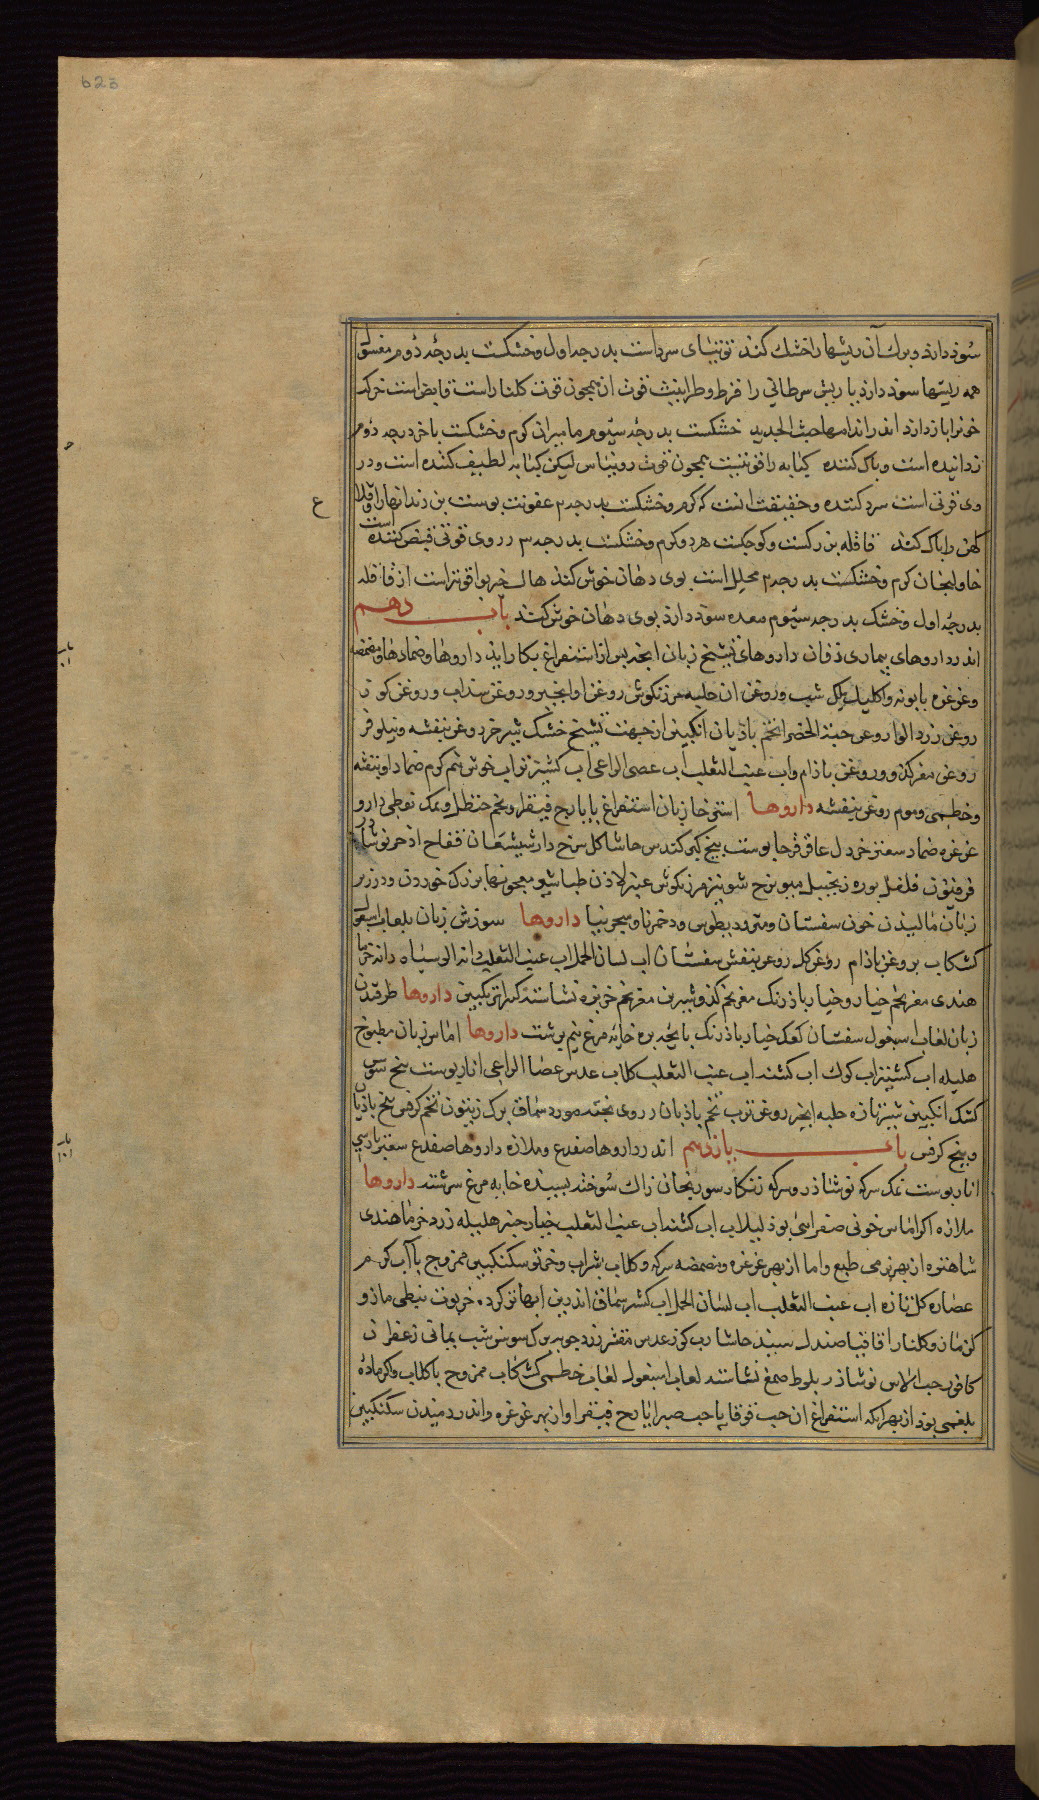 623
سود دارد و برك آن ریشها را خشك کند توتیای سرد است بدرجه اول و خشکست بدرجه دوم مغسول
همه ریشها سود دارد با ریش سرطانی را قرط و طراثیث قوت ان همچون قوت کلنار است قابض است حرکت
خونرا باز دارد اندر اندامها خبث الحدید خشکست بدرجه سیوم مامیران کرم و خشکست باخر درجه دوم
زداینده است و پاك کننده کبابه را قوتیست همچون قوت روبناس لیکن کبابه لطیف کننده است و در
وی قوتی است سرد کننده و حقیقت انست که کرم و خشکست بدرجه ۳ عفونت پوست بن دندانها را و قلاع
کهن را پاك کند قاقله بزرکست و کوچکست هر دو کرم و خشکست بدرجه ۳ در وی قوتی قبض کننده است
خاولنجان کرم و خشکست بدرجه ۳ محلل است بوی دهان خوش کند هال خیربوا قوتر است از قاقله
بدرجه اول و خشك بدرجه سیوم معده سود دارد بوی دهان خوش کند باب دهم
اندر داروهای بیماری زفان داروهای تشنج زبان انچه پس از استفراغ بکار اید داروها و ضمادها و مضمضه
و غرغره بابونه و اکلیل الملك شبت و روغن ان حلبه مرزنکوش روغن او انجیر و روغن سداب و روغن
روغن زرد الو روغن حبة الخضرا تخم بادیان انکبین از جهت تشنج خشك شیر خر روغن بنفشه و نیلوفر
روغن مغز کدو و روغن بادام و اب عنب الثعلب اب عصی الراعی اب کشنیز تر اب خوش نیم کرم ضماد او بنفشه
و خطمی و موم روغن بنفشه داروها استرخا زبان استفراغ با یارج فیقرا و تخم حنظل و نمك نفطی دارو
غرغره ضماد سعتر خردل عاقرقرحا پوست بیخ کبر کندس حاشا کل سرخ دارشیشعان فقاح اذخر نوشادر
فرفیون فلفل بوره زنجبیل میویزج شونیز مرزنکوش عنبر لادن طباشیر معجونها بزرك خوردن و در زیر
زبان مالیدن خون سفستان و مثرودیطوس و دخمرثا و سجرنیا داروها سوزش زبان بلعاب اسبغول
کشکاب بروغن بادام روغن کل روغن بنفش سفستان اب لسان الحمل اب عنب الثعلب دانه الو سیاه دانه خرما
هندی مغز تخم خیار و خیار بادرنك مغز تخم کدو شیرین مغز تخم خربزه نشاسته کتیرا ترنکبین داروها طرقیدن
زبان لعاب اسبغول سفستان کعك خیار بادرنك پایچه بره خایه مرغ نیم برشت داروها اماس زبان مطبوخ
هلیله اب کشنیز اب کوك اب کشنه اب عنب الثعلب کلاب عدس عصا الراعی انار پوست بیخ سوس
کشك انکبین شیر تازه حلبه انجیر روغن ترب تخم بادیان روی پخته مورد سماق برك زیتون تخم کرفس بیخ بادیان
و بیخ کرفس باب یازدهم اندر داروها ضفدع و ملازه داروها ضفدع سعتر پارسی
انار پوست نمك سرکه نوشادر و سرکه زنکار سورنجان زاك سوخته بسپیده خایه مرغ سرشته داروها
ملازه اکر اماس خونی صفرایی بود لبلاب اب کشنه اب عنب الثعلب خیار چنبر هلیله زرد خرما هندی
شاهتره از بهر نرمی طبع و اما از بهر غرغره و مضمضه سرکه و کلاب شراب و خرتوت سکنکبین ممزوج با آب کرم
عصاره کل تازه اب عنب الثعلب اب لسان الحمل اب کشنه سماق اندرین ابها تر کرده خرنوب نبطی مازو
کزمازو کلنار اقاقیا صندل سپید حاشا رب کوز عدس مقشر زردچوبه برك سوسن شب یمانی زعفران
کافور حب الاس نوشادر بلوط صمغ نشاسته لعاب اسبغول لعاب خطمی کشکاب ممزوج با کلاب و اکر ماده
بلغمی بود از بهر انکه استفراغ ان حب قوقایا حب صبر ایارج فیقرا و از بهر غرغره و اندر دمیدن سکنکبین